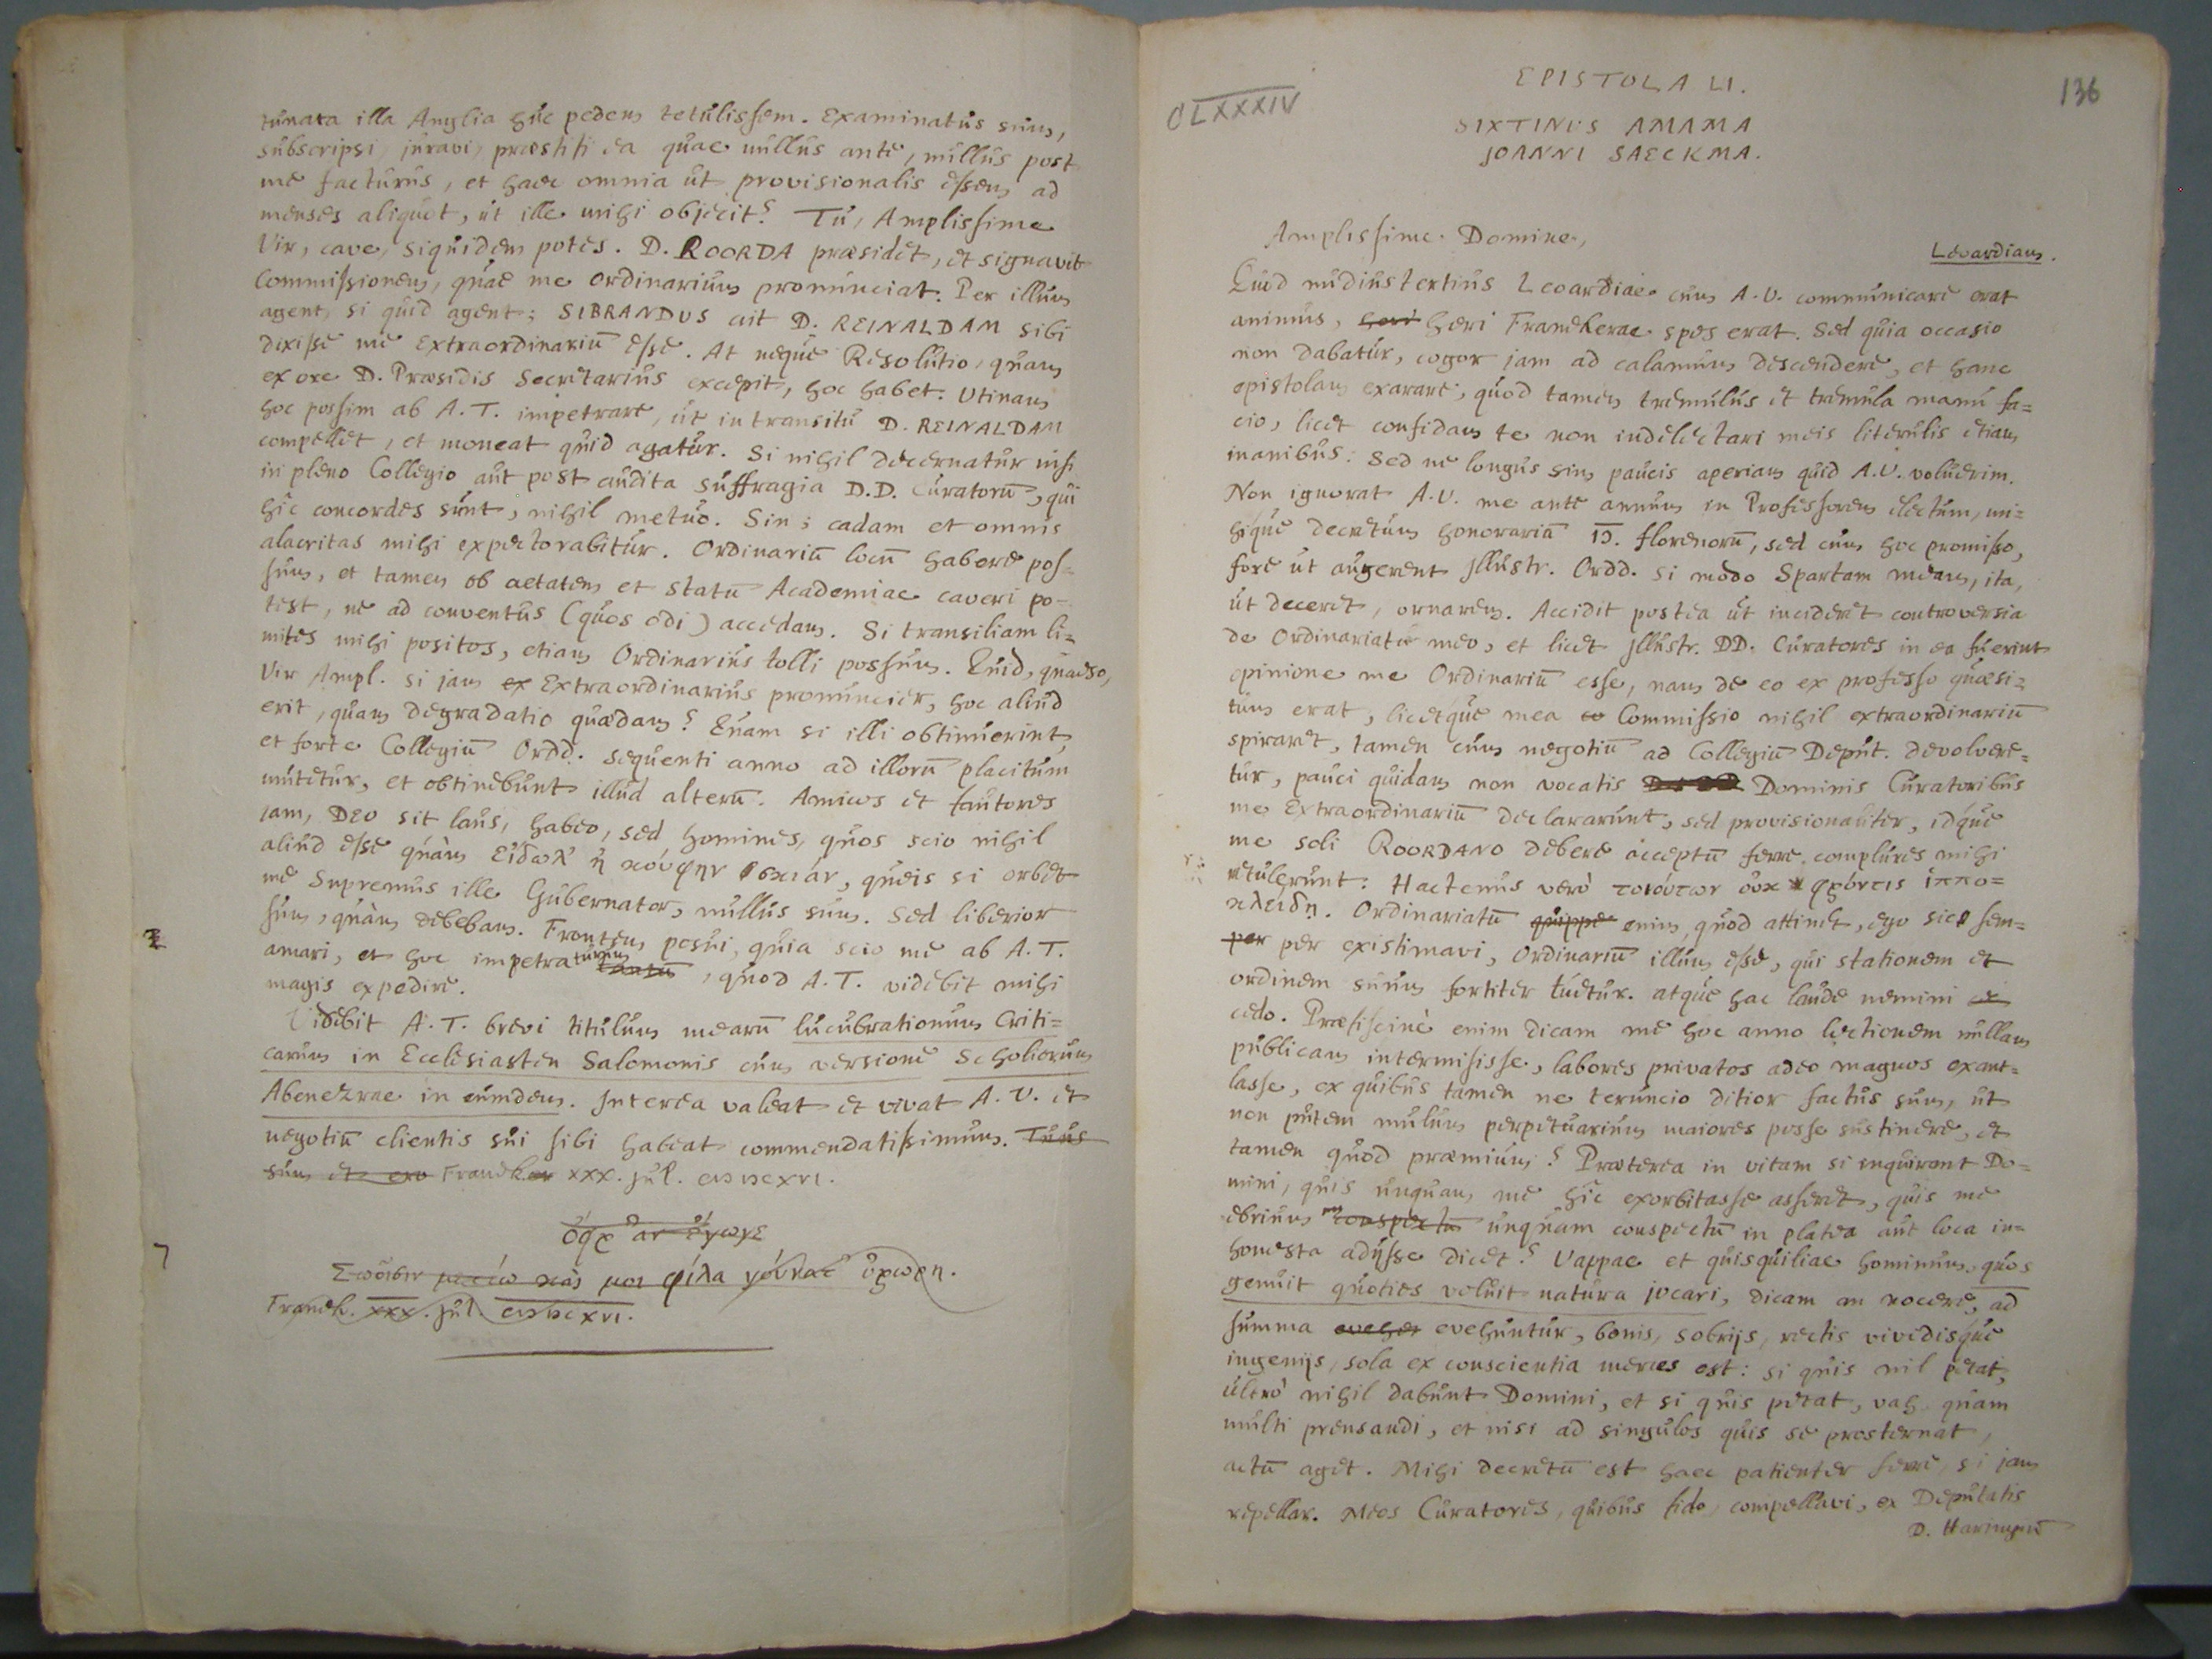 tunata illa Anglia huc pedem tetulissem. Examinatus sum,
subscripsi, juravi, praestiti ea quae nullus ante, nullus post
me facturus, et haec omnia ut provisionalis essem ad
menses aliquot, ut ille mihi objecit? Tu, Amplissime
Vir, cave, siquidem potes. D. ROORDA praesidet, et signavit
Commissionem, quae me Ordinarium pronunciat. Per illum
agent, si quid agent; SIBRANDUS ait D. REINALDAM sibi
dixisse me extraordinariū esse. At neque Resolutio, quam
ex ore D. Praesidis Secretarius excepit, hoc habet. Utinam
hoc possim ab A. T. impetrare, ut in transitu D. REINALDAM
compellet, et moneat quid agatur. Si nihil decernatur nisi
in pleno Collegio aut post audita suffragia D.D. Curatorū, qui
hic concordes sunt, nihil metuo. Sin; cadam et omnis
alacritas mihi expectorabitur. Ordinariū locū habere pos-
sum, et tamen ob aetatem et statū Academiae caveri po-
test, ne ad conventus (quos odi) accedam. Si transiliam li=
mites mihi positos, etiam Ordinarius tolli possum. Quid, quaeso,
Vir Ampl. si jam ex Extraordinarius pronuncier, hoc aliud
erit, quam degradatio quaedam? Quam si illi obtinuerint,
et forte Collegiū Ordd. sequenti anno ad illorū placitum
mutetur, et obtinebunt illud alterū. Amicos et fautores
jam, DEO sit laus, habeo, sed homines, quos scio nihil
aliud esse quàm εἴδωλ' ἢ κούφην σκιάν, queis si orbet
me Supremus ille Gubernator, nullus sum. Sed liberior
sum, quàm debebam. Frontem posui, quia scio me ab A. T.
amari, et hoc impetraturum, quod A. T. videbit mihi
magis expedire.
Videbit A. T. brevi titulum mearū lucubrationum Criti=
carum in Ecclesiasten Salomonis cum versione Scholiorum
Abenezrae in eumdem. Interea valeat et vivat A. V. et
negotiū clientis sui sibi habeat commendatissimum. Tuus
sum et ero Franek. xxx. jul. CIƆIƆCXVI.
ὄφρ' ἂν ἔγωγε
Ζώοισιν μετέω καὶ μοι φίλα γούνατ' ὀρώρῃ.
Franek. xxx. jul. CIƆIƆCXVI.
CLXXXIV
136
EPISTOLA LI.
SIXTINUS AMAMA
JOANNI SAECKMA.
Amplissime Domine,
Leoardiam.
Quod nudiustertius Leoardiae cum A. V. communicare erat
animus, heri heri Franekerae spes erat. Sed quia occasio
non dabatur, cogor jam ad calamum descendere, et hanc
epistolam exarare; quod tamen tremulus et tremula manu fa=
cio, licet confidam te non indelectari meis literulis etiam
inanibus. Sed ne longus sim paucis aperiam quid A.V. voluerim.
Non ignorat A.V. me ante annum in Professorem electum, mi=
hique decretum honorariū IƆ. florenorū, sed cum hoc promisso,
fore ut augerent Jllustr. Ordd. si modo Spartam meam, ita,
ut deceret, ornarem. Accidit postea ut incideret controversia
de Ordinariatu meo, et licet Jllustr. DD. Curatores in ea fuerint
opinione me Ordinariū esse, nam de eo ex professo quaesi=
tum erat, licetque mea Commissio nihil extraordinariū
spiraret, tamen cum negotiū ad Collegiū Deput. devolvere=
tur, pauci quidam non vocatis Dominis Curatoribus
me Extraordinariū declararunt, sed provisionaliter, idque
me soli ROORDANO debere acceptū ferre complures mihi
retulerunt. Hactenus verò τοιούτων οὐκ φρόντις ἱππο=
κλείδῃ. Ordinariatū quippe enim quod attinet, ego sic sem=
per per existimavi, Ordinariū illum esse, qui stationem et
ordinem suum fortiter tuetur. atque hac laude nemini
cedo. Praefiscinè enim dicam me hoc anno lectionem nullam
publicam intermisisse, labores privatos adeo magnos exant=
lasse, ex quibus tamen ne teruncio ditior factus sum, ut
non putem mulum perpetuarium maiores posse sustinere, et
tamen quod praemium? Praeterea in vitam si inquirant Do=
mini, quis unquam me hîc exorbitasse asseret, quis me
ebrium conspectū unquam conspectū in platea aut loca in=
honesta adijsse dicet? Vappae et quisquiliae hominum, quos
genuit quoties voluit natura jocari, dicam an nocere, ad
summa eveher evehuntur, bonis, sobrijs, rectis vividisque
ingenijs, sola ex conscientia merces est: si quis nil petat,
ultrò nihil dabunt Domini, et si quis petat, vah quam
multi prensandi, et nisi ad singulos quis se prosternat,
actū aget. Mihi decretū est haec patienter ferre, si jam
repellar. Meos Curatores, quibus fido, compellavi, ex Deputatis
D. Haringiū